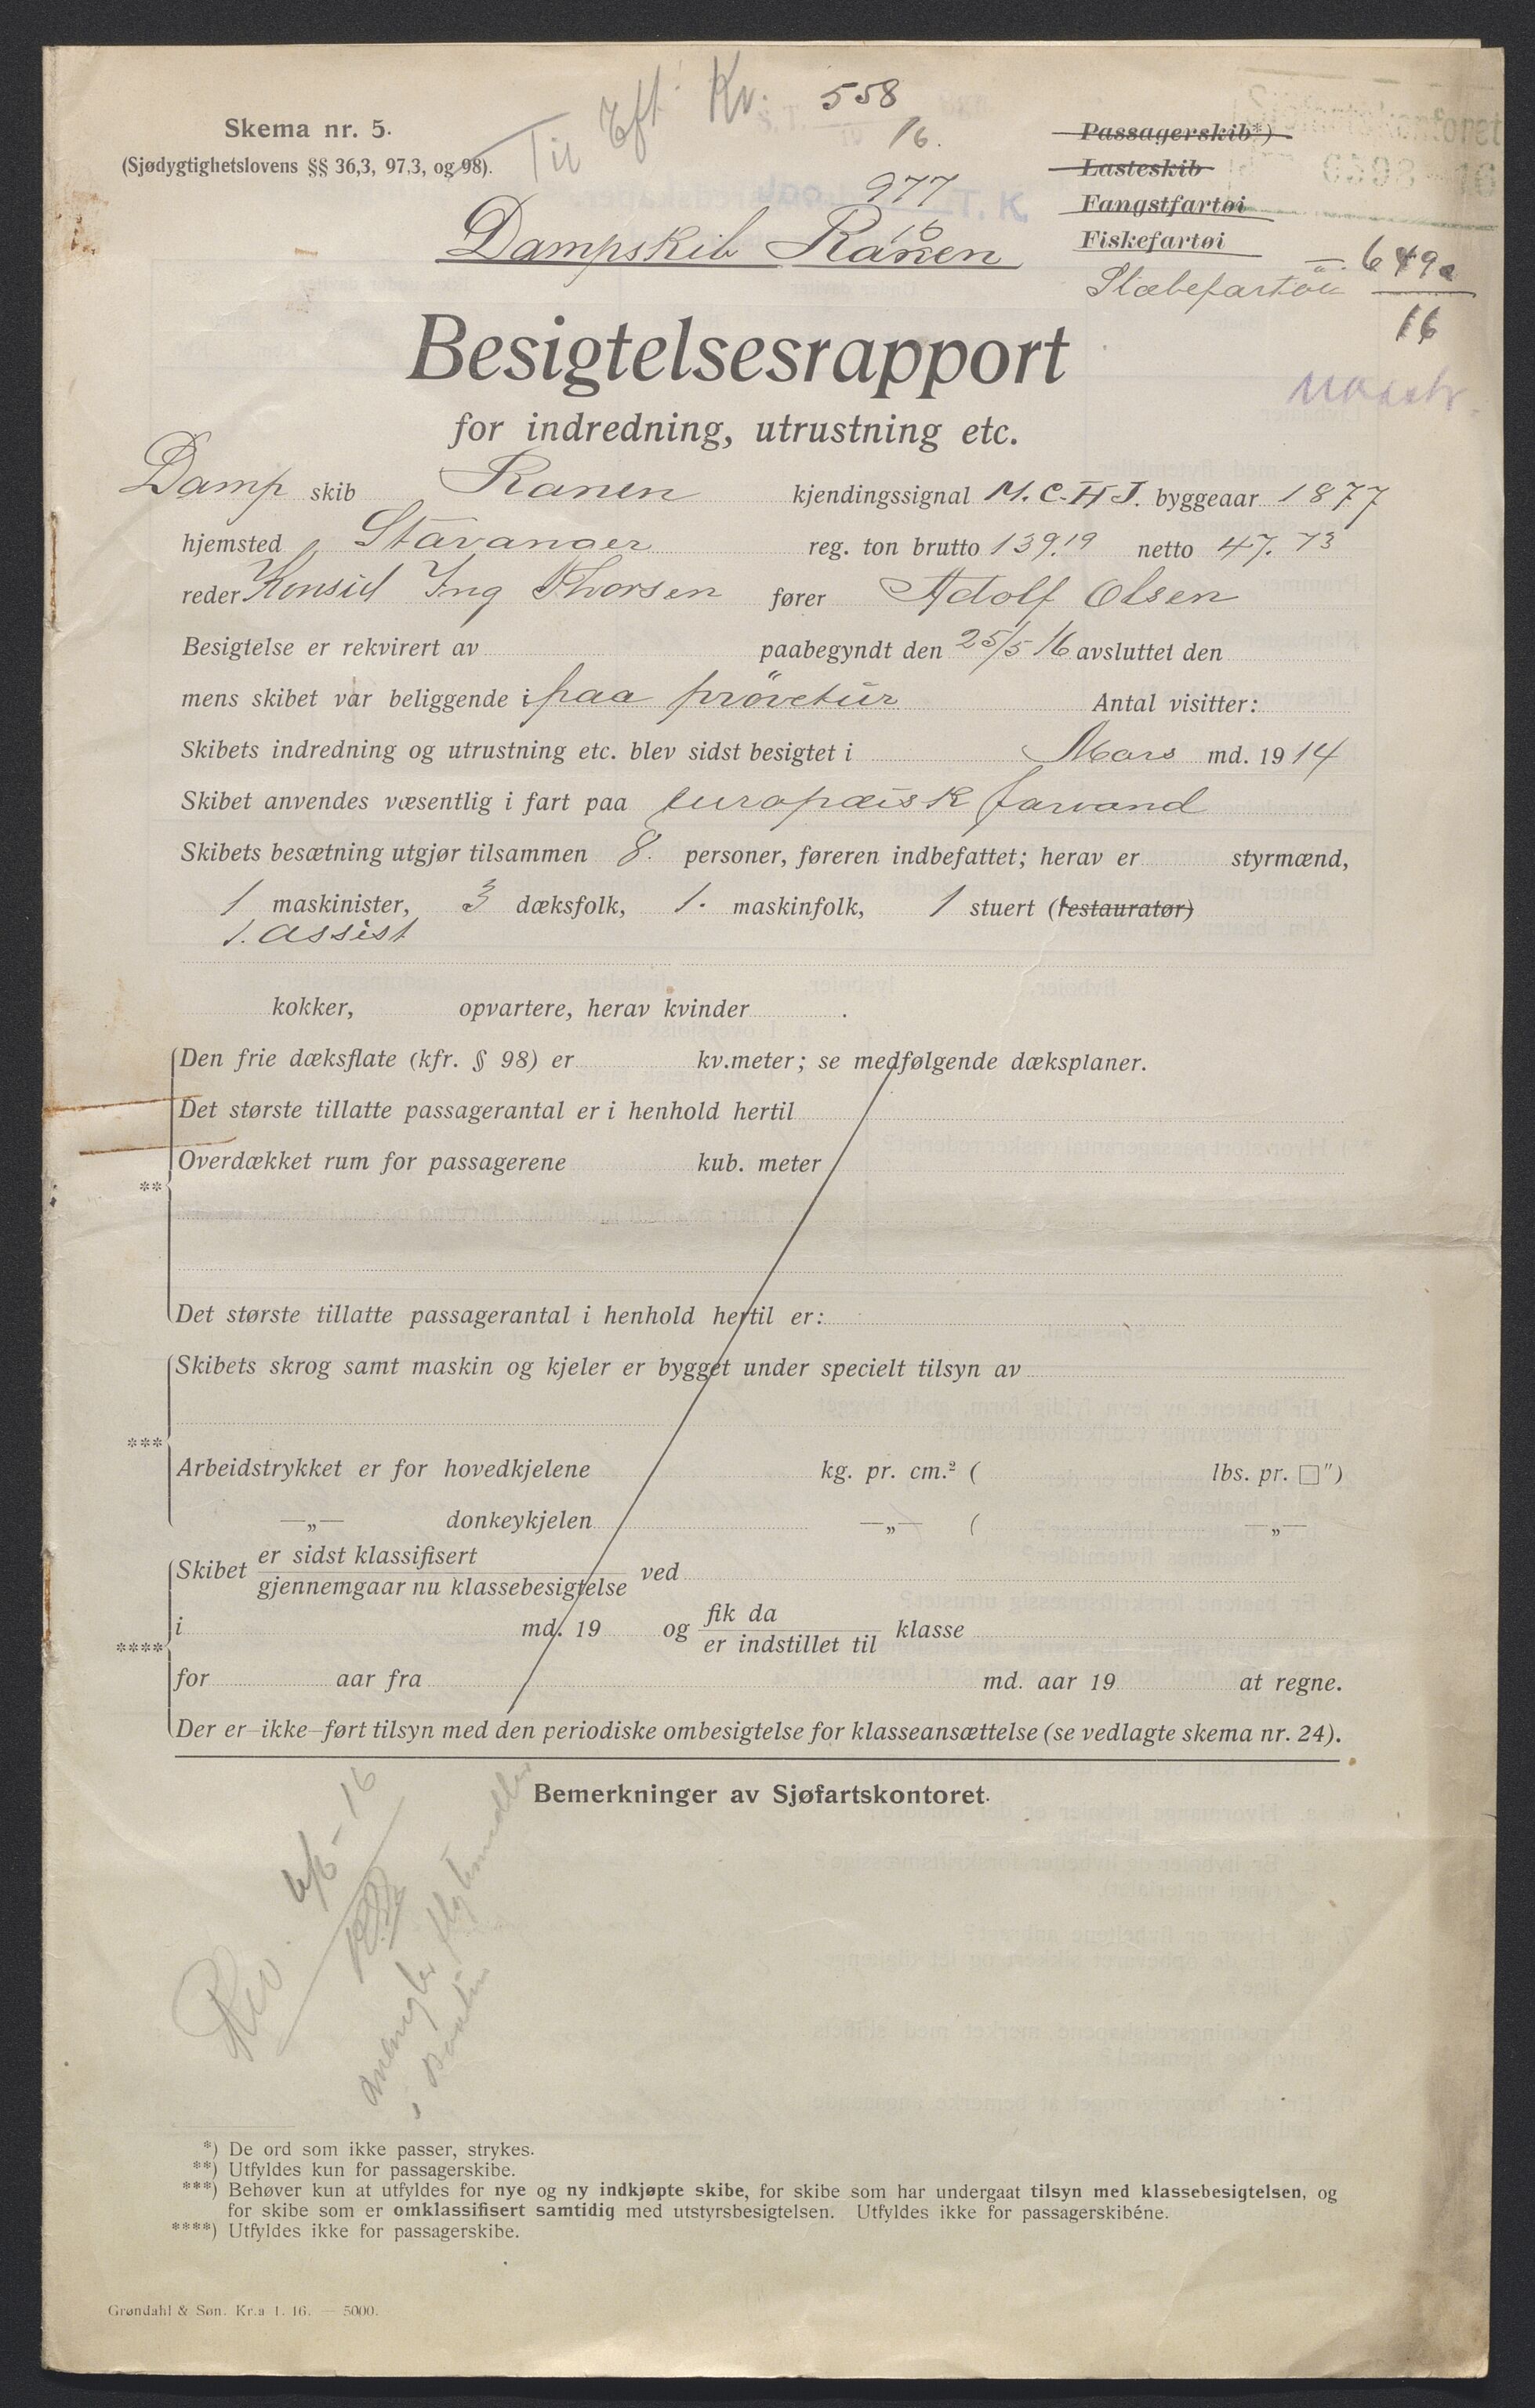 Til Eft. Kv. 558
16.
Skema nr. 5.
(Sjødygtighetslovens §§ 36,3, 97,3, og 98).
Passagerskib*)
Lasteskib
Fangstfartøi
Fiskefartøi
Slæbefartøi
6598 16
977
16
T. K.
Dampskib Ranen
649a
16
Besigtelsesrapport
for indredning, utrustning etc.
Damp skib Ranen kjendingssignal M.C.H.J. byggeaar 1877
hjemsted Stavanger reg. ton brutto 139.19 netto 47.73
reder Konsul Ing Thorsen fører Adolf Olsen
Besigtelse er rekvirert av paabegyndt den 25/5 16 avsluttet den
mens skibet var beliggende i paa prövetur Antal visitter:
Skibets indredning og utrustning etc. blev sidst besigtet i Mars md. 1914
Skibet anvendes væsentlig i fart paa europæisk farvand
Skibets besætning utgjør tilsammen 8. personer, føreren indbefattet; herav er styrmænd,
1 maskinister, 3 dæksfolk, 1. maskinfolk, 1 stuert (restauratør)
1. assist
kokker, opvartere, herav kvinder .
Den frie dæksflate (kfr. § 98) er kv.meter; se medfølgende dæksplaner.
Det største tillatte passagerantal er i henhold hertil
Overdækket rum for passagerene kub. meter
**
Det største tillatte passagerantal i henhold hertil er:
Skibets skrog samt maskin og kjeler er bygget under specielt tilsyn av
***
Arbeidstrykket er for hovedkjelene kg. pr. cm.² ( lbs. pr. □")
—„— donkeykjelen —„— ( —„—
Skibet er sidst klassifisert
gjennemgaar nu klassebesigtelse ved
i md. 19 og fik da
er indstillet til klasse
****
for aar fra md. aar 19 at regne.
Der er–ikke–ført tilsyn med den periodiske ombesigtelse for klasseansættelse (se vedlagte skema nr. 24).
Bemerkninger av Sjøfartskontoret.
Rev. 6/6-16
*) De ord som ikke passer, strykes.
**) Utfyldes kun for passagerskibe.
***) Behøver kun at utfyldes for nye og ny indkjøpte skibe, for skibe som har undergaat tilsyn med klassebesigtelsen, og
for skibe som er omklassifisert samtidig med utstyrsbesigtelsen. Utfyldes ikke for passagerskibéne.
****) Utfyldes ikke for passagerskibe.
Grøndahl & Søn. Kr.a 1. 16. — 5000.